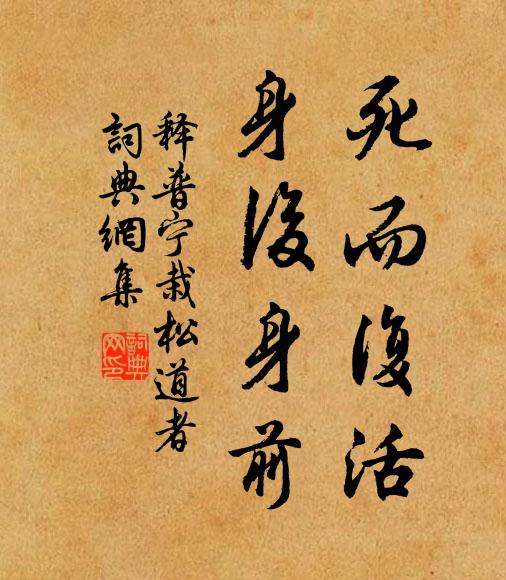 死而復活
身後身前
释普宁栽松道者
詞典網集
詞典網印